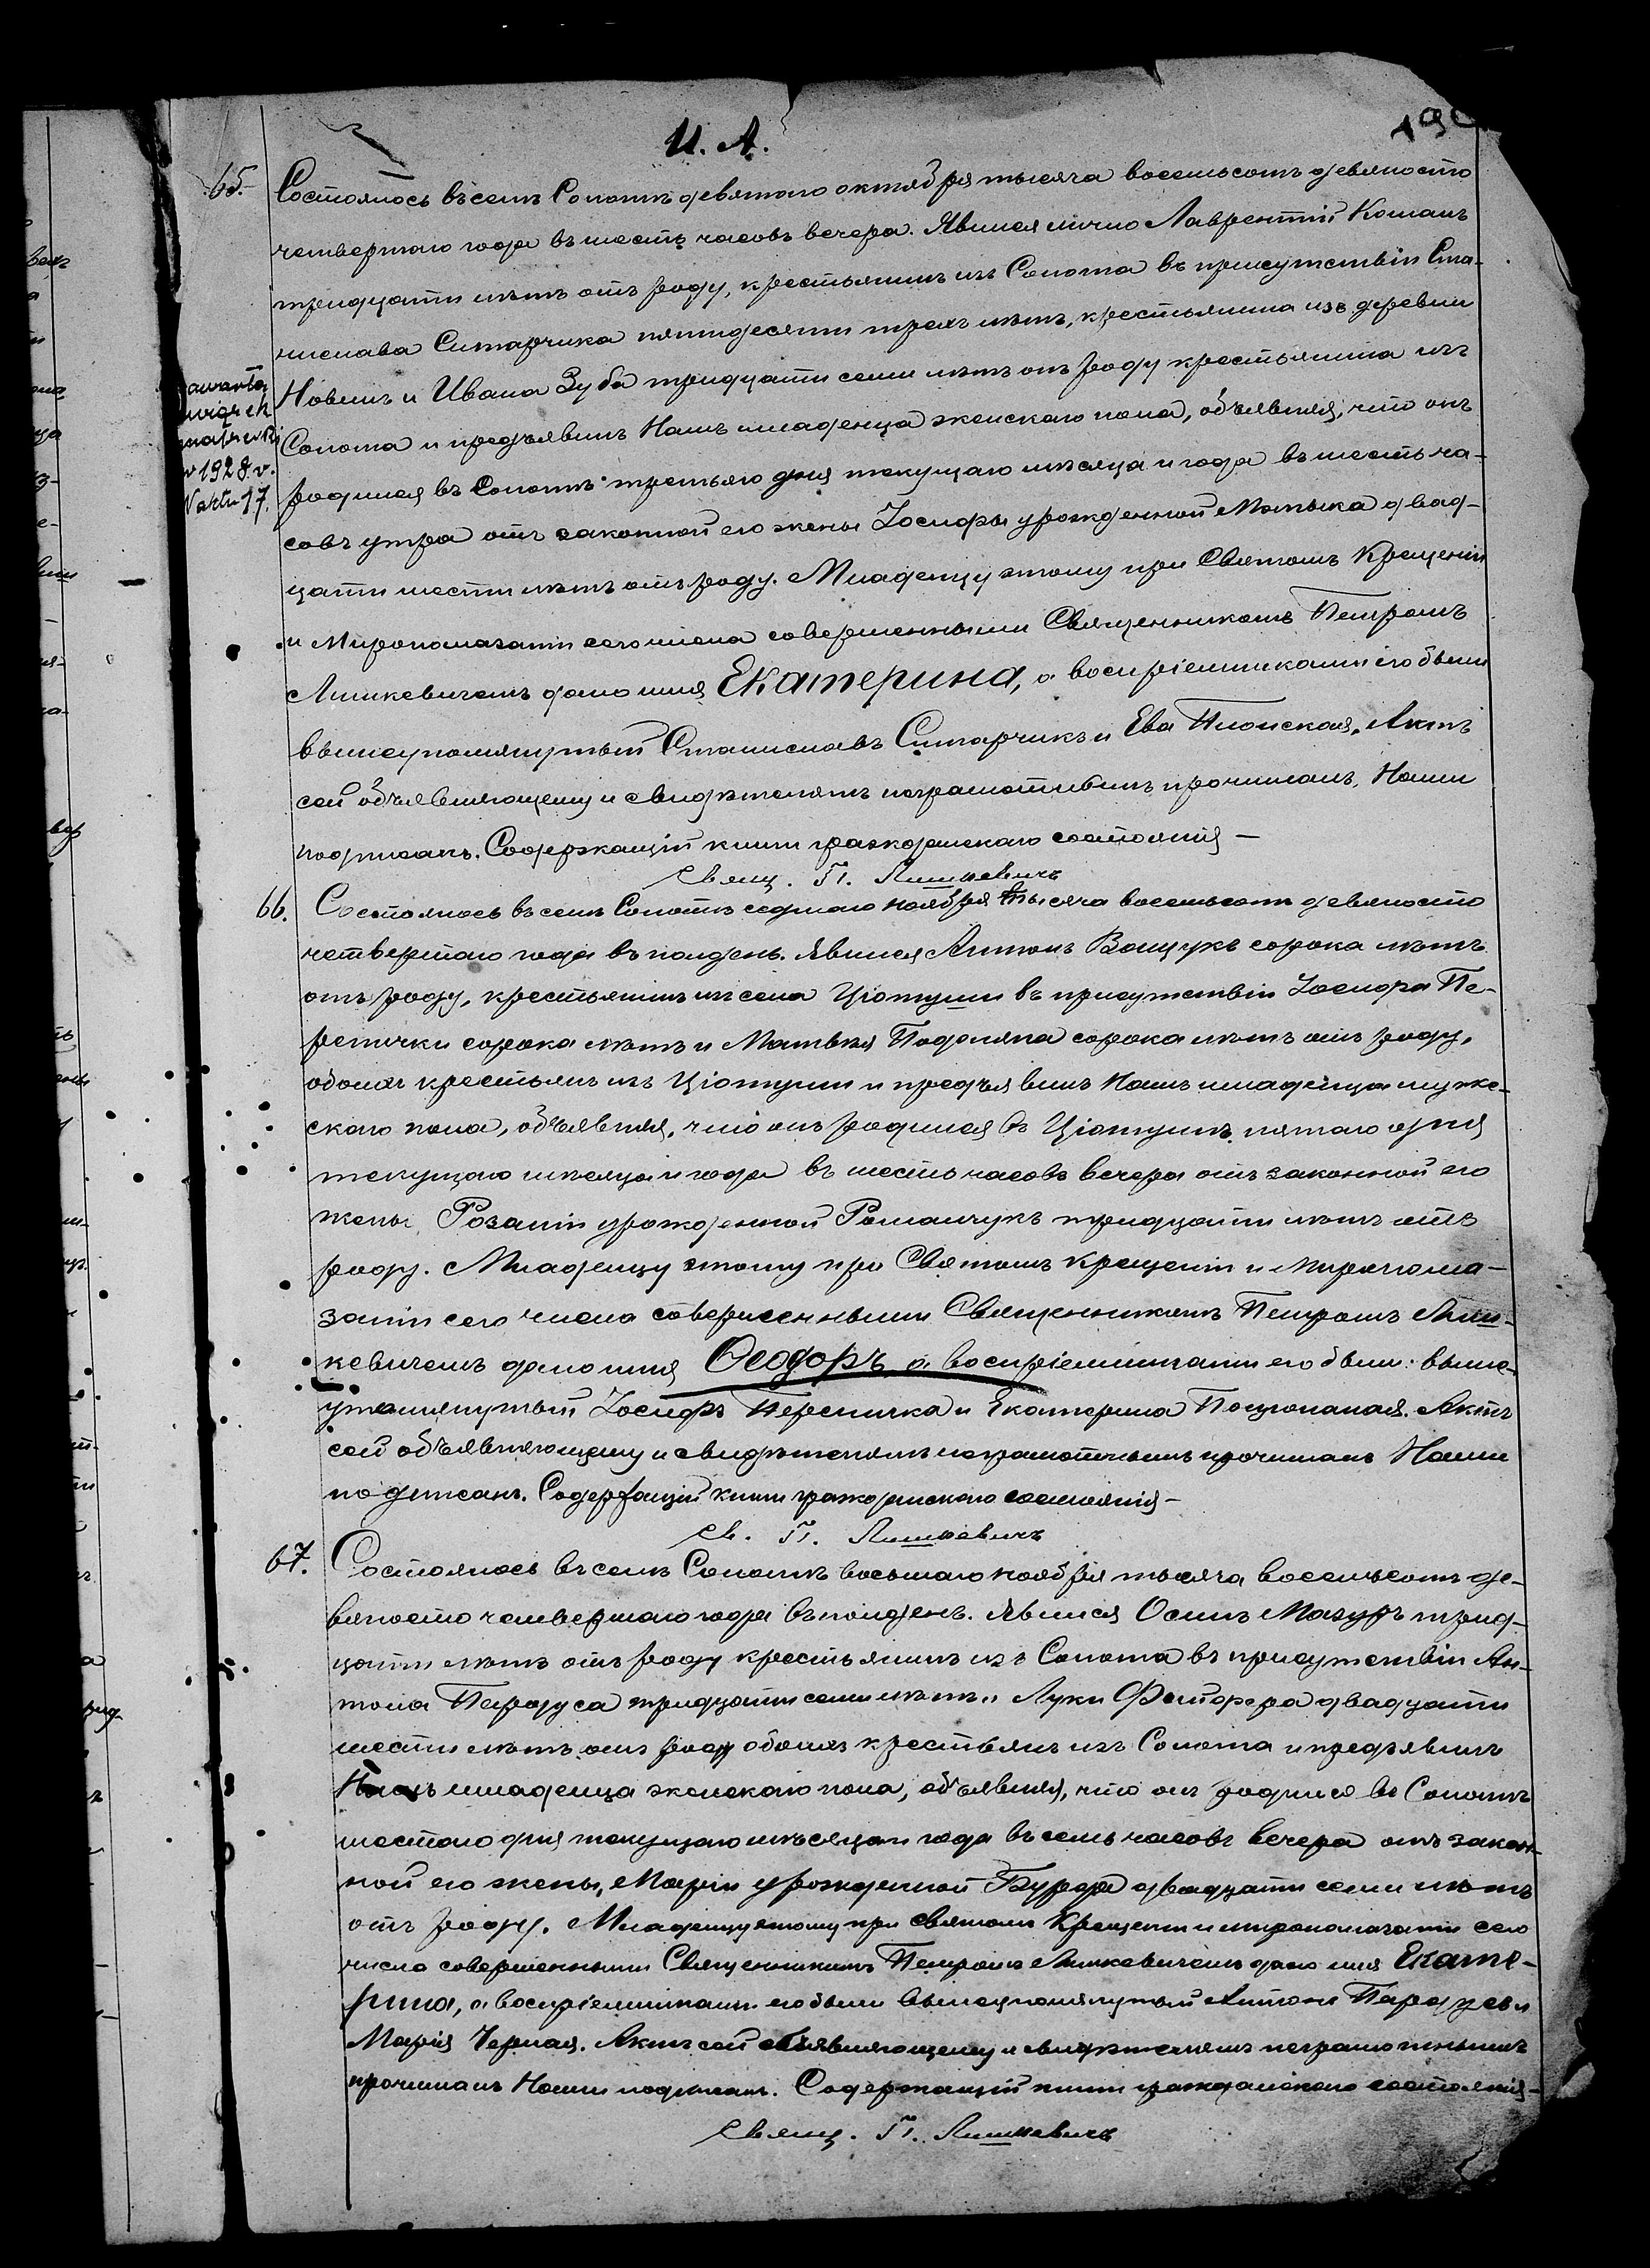 И. А.
65. Состоялось въ семъ Сопотѣ девятаго октября тысяча восемьсотъ девяносто
четвертаго года въ шесть часовъ вечера. Явился лично Лаврентій Команъ
тридцати лѣтъ отъ роду, крестьянинъ изъ Сопота въ присутствіи Ста-
нислава Ситарчика пятидесяти трехъ лѣтъ, крестьянина изъ деревни
Новинъ и Ивана Зуба тридцати семи лѣтъ отъ роду крестьянина изъ
Сопота и предъявилъ Намъ младенца женскаго пола, объявляя, что онъ
родился въ Сопотѣ третьяго дня текущаго мѣсяца и года въ шесть ча-
совъ утра отъ законной его жены Іосифы урожденной Матыка двад-
цати шести лѣтъ отъ роду. Младенцу этому при Святомъ Крещеніи
и Миропомазаніи сего числа совершенными Священникомъ Петромъ
Лишкевичемъ дано имя Екатерина, а воспріемниками его были
вышеупомянутый Станиславъ Ситарчикъ и Ева Плонская. Актъ
сей объявляющему и свидѣтелямъ неграмотнымъ прочитанъ, Нами
подписанъ. Содержащій книги гражданскаго состоянія —
Свящ. П. Лишкевичъ
zawarła
związek
małżeński
w 1928 r.
N aktu 17.
66. Состоялось въ семъ Сопотѣ седмаго ноября тысяча восемьсотъ девяносто
четвертаго года въ полдень. Явился Антонъ Ващукъ сорока лѣтъ
отъ роду, крестьянинъ изъ села Ціотуши въ присутствіи Іосифа Пе-
репички сорока лѣтъ и Матвѣя Подоляна сорока лѣтъ отъ роду,
обоихъ крестьянъ изъ Ціотуши и предъявилъ Намъ младенца муже-
скаго пола, объявляя, что онъ родился въ Ціотушѣ пятаго дня
текущаго мѣсяца и года въ шесть часовъ вечера отъ законной его
жены Розаліи урожденной Романчукъ тридцати лѣтъ отъ
роду. Младенцу этому при Святомъ Крещеніи и Миропома-
заніи сего числа совершенными Священникомъ Петромъ Лиш-
кевичемъ дано имя Ѳеодоръ, а воспріемниками его были: выше-
упомянутый Іосифъ Перепичка и Екатерина. Актъ
сей объявляющему и свидѣтелямъ неграмотнымъ прочитанъ Нами
подписанъ. Содержащій книги гражданскаго состоянія —
Св. П. Лишкевичъ
67. Состоялось въ семъ Сопотѣ восьмаго ноября тысяча восемьсотъ де-
вяносто четвертаго года въ полдень. Явился Осипъ Мазуръ трид-
цати лѣтъ отъ роду крестьянинъ изъ Сопота въ присутствіи Ан-
тона Парадуса тридцати семи лѣтъ и Луки двадцати
шести лѣтъ отъ роду обоихъ крестьянъ изъ Сопота и предъявилъ
Намъ младенца женскаго пола, объявляя, что онъ родился въ Сопотѣ
шестаго дня текущаго мѣсяца и года въ семь часовъ вечера отъ закон-
ной его жены, Маріи урожденной Бурда двадцати семи лѣтъ
отъ роду. Младенцу этому при святомъ Крещеніи и миропомазаніи сего
числа совершенными Священникомъ Петромъ Лишкевичемъ дано имя Екате-
рина, а воспріемниками его были вышеупомянутый Антонъ Парадусъ и
Марія Черная. Актъ сей объявляющему и свидѣтелямъ неграмотнымъ
прочитанъ Нами подписанъ. Содержащій книги гражданскаго состоянія —
Свящ. П. Лишкевичъ